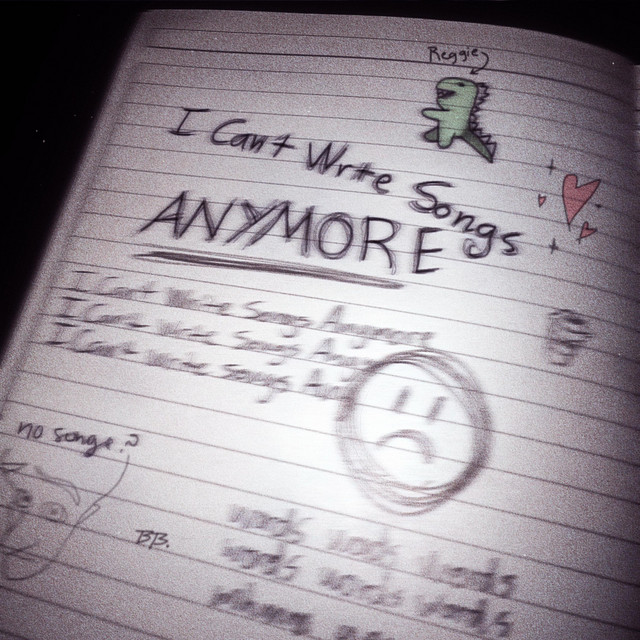 Reggie
I Can't Write Songs
ANYMORE
I Can't Write Songs Anymore
I Can't Write Songs
I Can't Write Songs
no songe?
BB.
words words words
words words words